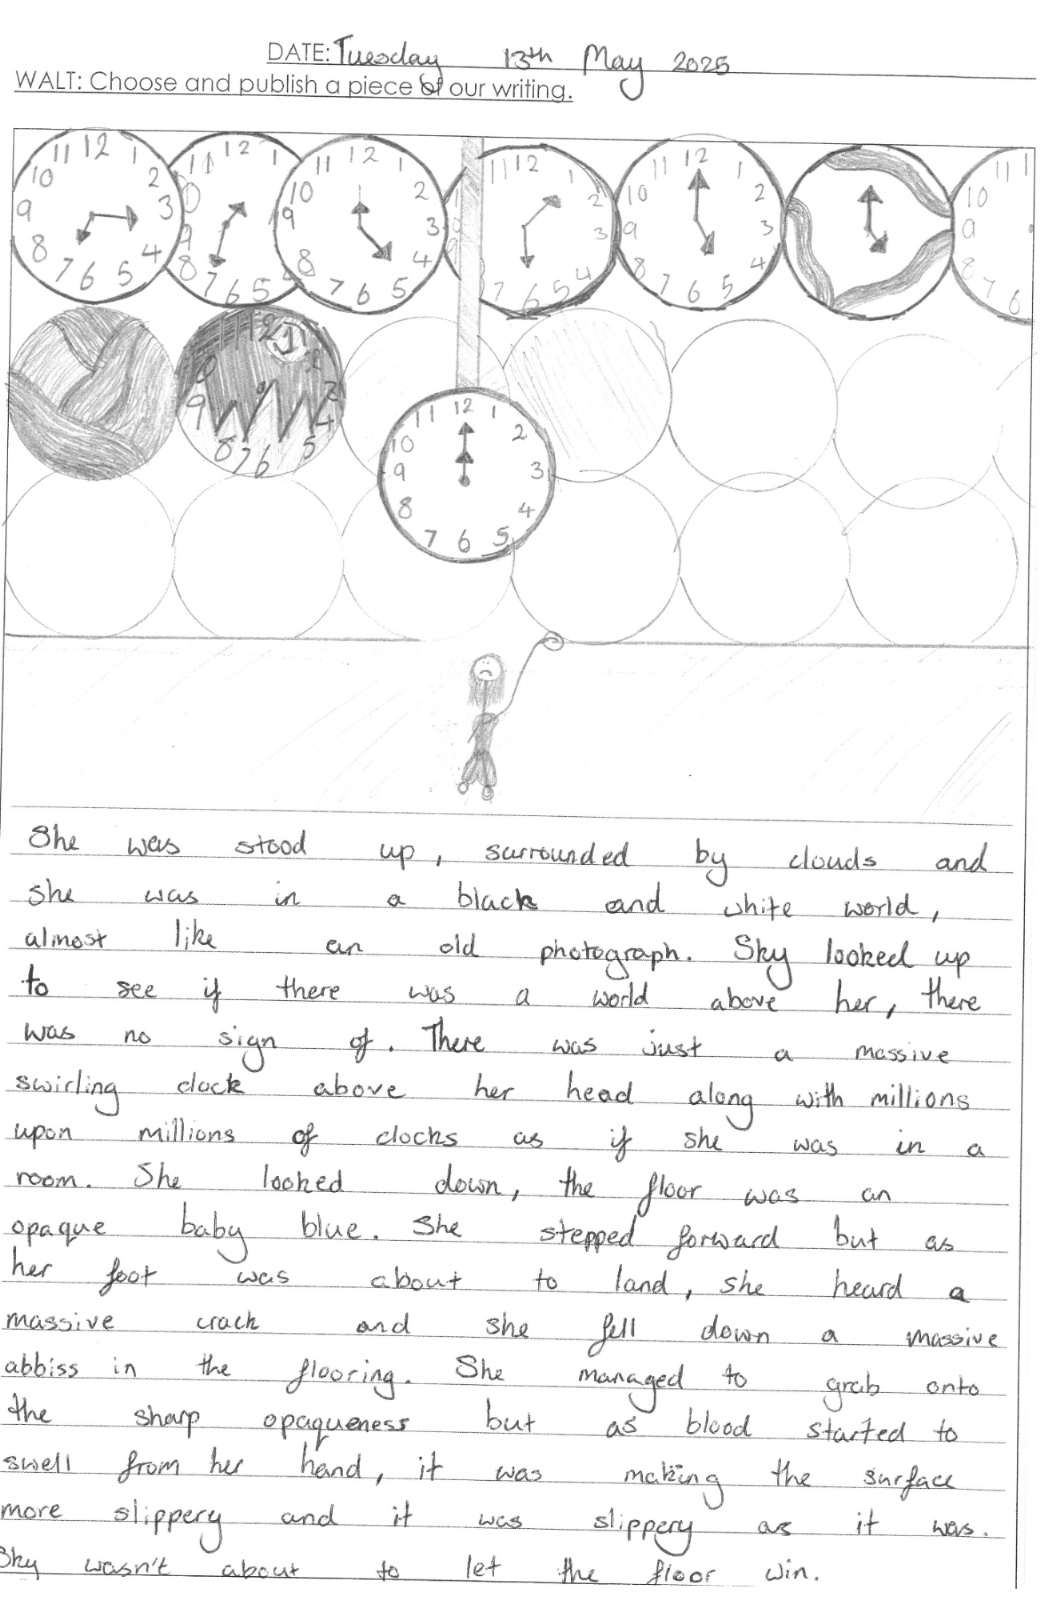 DATE: Tuesday 13th May 2025
WALT: Choose and publish a piece of our writing.
She was stood up, surrounded by clouds and
she was in a black and white world,
almost like an old photograph. Sky looked up
to see if there was a world above her, there
was no sign of. There was just a massive
swirling clock above her head along with millions
upon millions of clocks as if she was in a
room. She looked down, the floor was an
opaque baby blue. She stepped forward but as
her foot was about to land, she heard a
massive crack and she fell down a massive
abbiss in the flooring. She managed to grab onto
the sharp opaqueness but as blood started to
swell from her hand, it was making the surface
more slippery and it was slippery as it was.
Sky wasn't about to let the floor win.